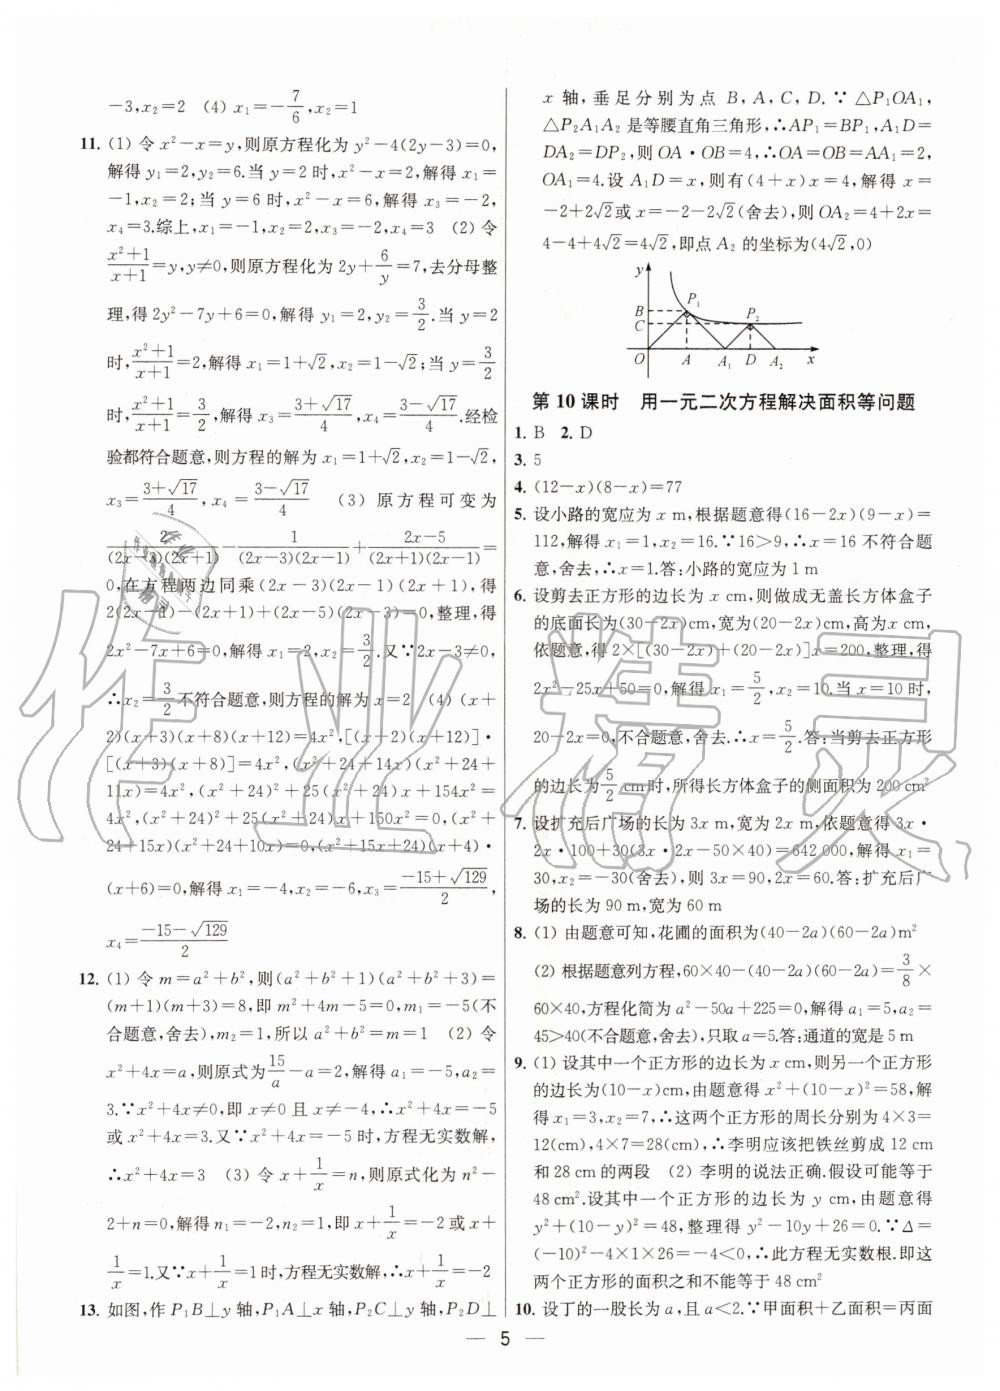 －3,x₂＝2　(4) x₁＝－7/6,x₂＝1
11. (1) 令 x²－x＝y,则原方程化为 y²－4(2y－3)＝0,
解得 y₁＝2,y₂＝6.当 y＝2 时,x²－x＝2,解得 x₁＝
－1,x₂＝2;当 y＝6 时,x²－x＝6,解得 x₃＝－2,
x₄＝3.综上,x₁＝－1,x₂＝2,x₃＝－2,x₄＝3　(2) 令
(x²＋1)/(x＋1)＝y,y≠0,则原方程化为 2y＋6/y＝7,去分母整
理,得 2y²－7y＋6＝0,解得 y₁＝2,y₂＝3/2.当 y＝2
时,(x²＋1)/(x＋1)＝2,解得 x₁＝1＋√2,x₂＝1－√2;当 y＝3/2
时,(x²＋1)/(x＋1)＝3/2,解得 x₃＝(3＋√17)/4,x₄＝(3－√17)/4.经检
验都符合题意,则方程的解为 x₁＝1＋√2,x₂＝1－√2,
x₃＝(3＋√17)/4,x₄＝(3－√17)/4　(3) 原方程可变为
2/((2x－3)(2x＋1))－1/((2x－3)(2x－1))＋(2x－5)/((2x＋1)(2x－1))＝
0,在方程两边同乘(2x－3)(2x－1)(2x＋1),得
2(2x－1)－(2x＋1)＋(2x－5)(2x－3)＝0,整理,得
2x²－7x＋6＝0,解得 x₁＝2,x₂＝3/2.又∵2x－3≠0,
∴x₂＝3/2不符合题意,则方程的解为 x＝2　(4) (x＋
2)(x＋3)(x＋8)(x＋12)＝4x²,[(x＋2)(x＋12)]·
[(x＋3)(x＋8)]＝4x²,(x²＋24＋14x)(x²＋24＋
11x)＝4x²,(x²＋24)²＋25(x²＋24)x＋154x²＝
4x²,(x²＋24)²＋25(x²＋24)x＋150x²＝0,(x²＋
24＋15x)(x²＋24＋10x)＝0,(x²＋15x＋24)(x＋4)·
(x＋6)＝0,解得 x₁＝－4,x₂＝－6,x₃＝(－15＋√129)/2,
x₄＝(－15－√129)/2
12. (1) 令 m＝a²＋b²,则(a²＋b²＋1)(a²＋b²＋3)＝
(m＋1)(m＋3)＝8,即 m²＋4m－5＝0,m₁＝－5(不
合题意,舍去),m₂＝1,所以 a²＋b²＝m＝1　(2) 令
x²＋4x＝a,则原式为15/a－a＝2,解得 a₁＝－5,a₂＝
3.∵x²＋4x≠0,即 x≠0 且 x≠－4,∴x²＋4x＝－5
或 x²＋4x＝3.又∵x²＋4x＝－5 时,方程无实数解,
∴x²＋4x＝3　(3) 令 x＋1/x＝n,则原式化为 n²－
2＋n＝0,解得 n₁＝－2,n₂＝1,即 x＋1/x＝－2 或 x＋
1/x＝1.又∵x＋1/x＝1 时,方程无实数解,∴x＋1/x＝－2
13. 如图,作 P₁B⊥y 轴,P₁A⊥x 轴,P₂C⊥y 轴,P₂D⊥
x 轴,垂足分别为点 B,A,C,D.∵△P₁OA₁,
△P₂A₁A₂ 是等腰直角三角形,∴AP₁＝BP₁,A₁D＝
DA₂＝DP₂,则 OA·OB＝4,∴OA＝OB＝AA₁＝2,
OA₁＝4.设 A₁D＝x,则有(4＋x)x＝4,解得 x＝
－2＋2√2或 x＝－2－2√2(舍去),则 OA₂＝4＋2x＝
4－4＋4√2＝4√2,即点 A₂ 的坐标为(4√2,0)
y
P₁
B
C
P₂
O
A
A₁
D
A₂
x
第 10 课时　用一元二次方程解决面积等问题
1. B　2. D
3. 5
4. (12－x)(8－x)＝77
5. 设小路的宽应为 x m,根据题意得(16－2x)(9－x)＝
112,解得 x₁＝1,x₂＝16.∵16＞9,∴x＝16 不符合题
意,舍去,∴x＝1.答:小路的宽应为 1 m
6. 设剪去正方形的边长为 x cm,则做成无盖长方体盒子
的底面长为(30－2x)cm,宽为(20－2x)cm,高为x cm,
依题意,得 2×[(30－2x)＋(20－2x)]x＝200,整理,得
2x²－25x＋50＝0,解得 x₁＝5/2,x₂＝10.当 x＝10 时,
20－2x＝0,不合题意,舍去.∴x＝5/2.答:当剪去正方形
的边长为5/2 cm时,所得长方体盒子的侧面积为 200 cm²
7. 设扩充后广场的长为 3x m,宽为 2x m,依题意得 3x·
2x·100＋30(3x·2x－50×40)＝642 000,解得 x₁＝
30,x₂＝－30(舍去),则 3x＝90,2x＝60.答:扩充后广
场的长为 90 m,宽为 60 m
8. (1) 由题意可知,花圃的面积为(40－2a)(60－2a)m²
(2) 根据题意列方程,60×40－(40－2a)(60－2a)＝3/8×
60×40,方程化简为 a²－50a＋225＝0,解得 a₁＝5,a₂＝
45＞40(不合题意,舍去),只取 a＝5.答:通道的宽是 5 m
9. (1) 设其中一个正方形的边长为 x cm,则另一个正方形
的边长为(10－x)cm,由题意得 x²＋(10－x)²＝58,解
得 x₁＝3,x₂＝7,∴这两个正方形的周长分别为 4×3＝
12(cm),4×7＝28(cm),∴李明应该把铁丝剪成 12 cm
和 28 cm 的两段　(2) 李明的说法正确.假设可能等于
48 cm².设其中一个正方形的边长为 y cm,由题意得
y²＋(10－y)²＝48,整理得 y²－10y＋26＝0.∵Δ＝
(－10)²－4×1×26＝－4＜0,∴此方程无实数根.即这
两个正方形的面积之和不能等于 48 cm²
10. 设丁的一股长为 a,且 a＜2.∵甲面积＋乙面积＝丙面
— 5 —
作业精灵